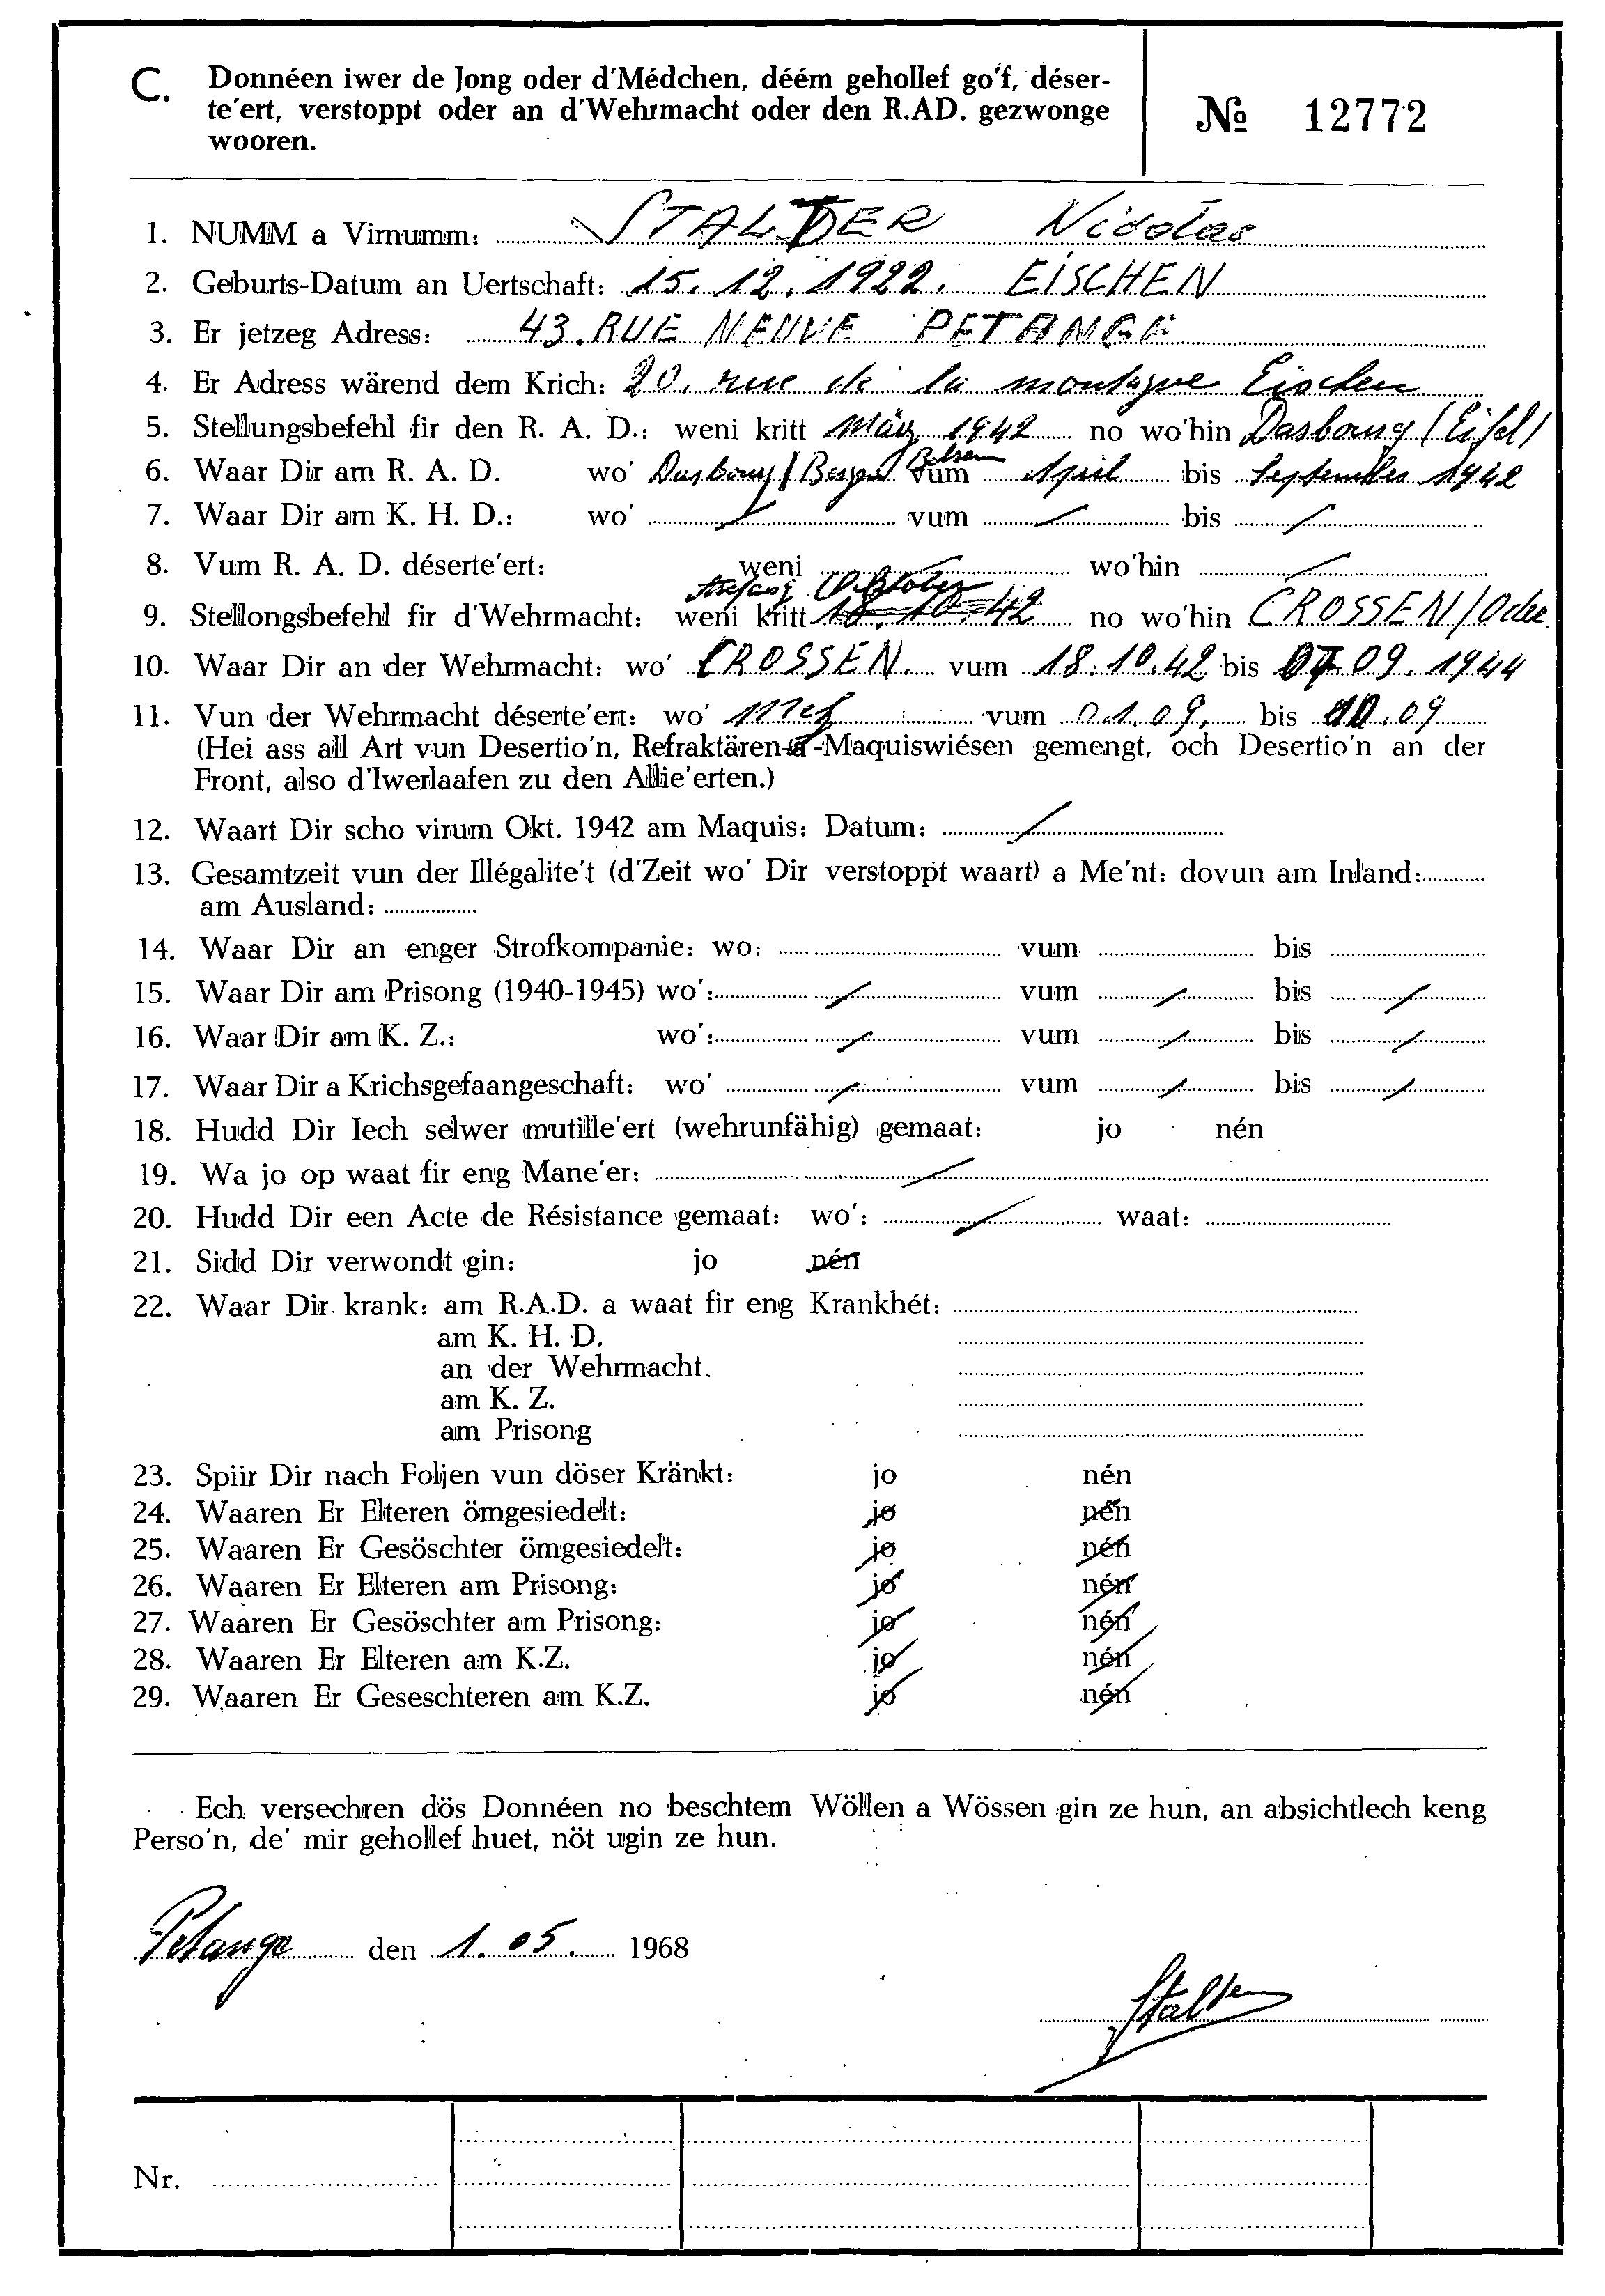 C. Donnéen iwer de Jong oder d'Médchen, déém gehollef go'f, déser-
te'ert, verstoppt oder an d'Wehrmacht oder den R.AD. gezwonge
wooren.
№ 12772
1. NUMM a Virnumm: STALTER Nicolas
2. Geburts-Datum an Uertschaft: 15.12.1922. EISCHEN
3. Er jetzeg Adress: 43. RUE NEUVE PETANGE
4. Er Adress wärend dem Krich: 20. rue de la montagne Eischen
5. Stellungsbefehl fir den R. A. D.: weni kritt März 1942 no wo'hin Dasbourg (Eifel)
6. Waar Dir am R. A. D. wo' Dasbourg / Bergen Belsen vum April bis September 1942
7. Waar Dir am K. H. D.: wo' / vum / bis /
8. Vum R. A. D. déserte'ert: weni / wo'hin /
9. Stellongsbefehl fir d'Wehrmacht: weni kritt Anfang Oktober 18.10.42 no wo'hin CROSSEN/Oder
10. Waar Dir an der Wehrmacht: wo' CROSSEN. vum 18.10.42 bis 09.1944
11. Vun der Wehrmacht déserte'ert: wo' Metz vum 01.09. bis 10.09
(Hei ass all Art vun Desertio'n, Refraktären-a-Maquiswiésen gemengt, och Desertio'n an der
Front, also d'Iwerlaafen zu den Allie'erten.)
12. Waart Dir scho virum Okt. 1942 am Maquis: Datum: /
13. Gesamtzeit vun der Illégalite't (d'Zeit wo' Dir verstoppt waart) a Me'nt: dovun am Inland:
am Ausland:
14. Waar Dir an enger Strofkompanie: wo: vum bis
15. Waar Dir am Prisong (1940-1945) wo': / vum / bis /
16. Waar Dir am K. Z.: wo': / vum / bis /
17. Waar Dir a Krichsgefaangeschaft: wo' / vum / bis /
18. Hudd Dir Iech selwer mutille'ert (wehrunfähig) gemaat: jo nén
19. Wa jo op waat fir eng Mane'er: /
20. Hudd Dir een Acte de Résistance gemaat: wo': / waat:
21. Sidd Dir verwondt gin: jo nén
22. Waar Dir krank: am R.A.D. a waat fir eng Krankhét:
am K. H. D.
an der Wehrmacht.
am K. Z.
am Prisong
23. Spiir Dir nach Foljen vun döser Kränkt: jo nén
24. Waaren Er Elteren ömgesiedelt: jo nén
25. Waaren Er Gesöschter ömgesiedelt: jo nén
26. Waaren Er Elteren am Prisong: jo nén
27. Waaren Er Gesöschter am Prisong: jo nén
28. Waaren Er Elteren am K.Z. jo nén
29. Waaren Er Geseschteren am K.Z. jo nén
Ech versechren dös Donnéen no beschtem Wöllen a Wössen gin ze hun, an absichtlech keng
Perso'n, de' mir gehollef huet, nöt ugin ze hun.
Petange den 1.05. 1968
Stalter
Nr.